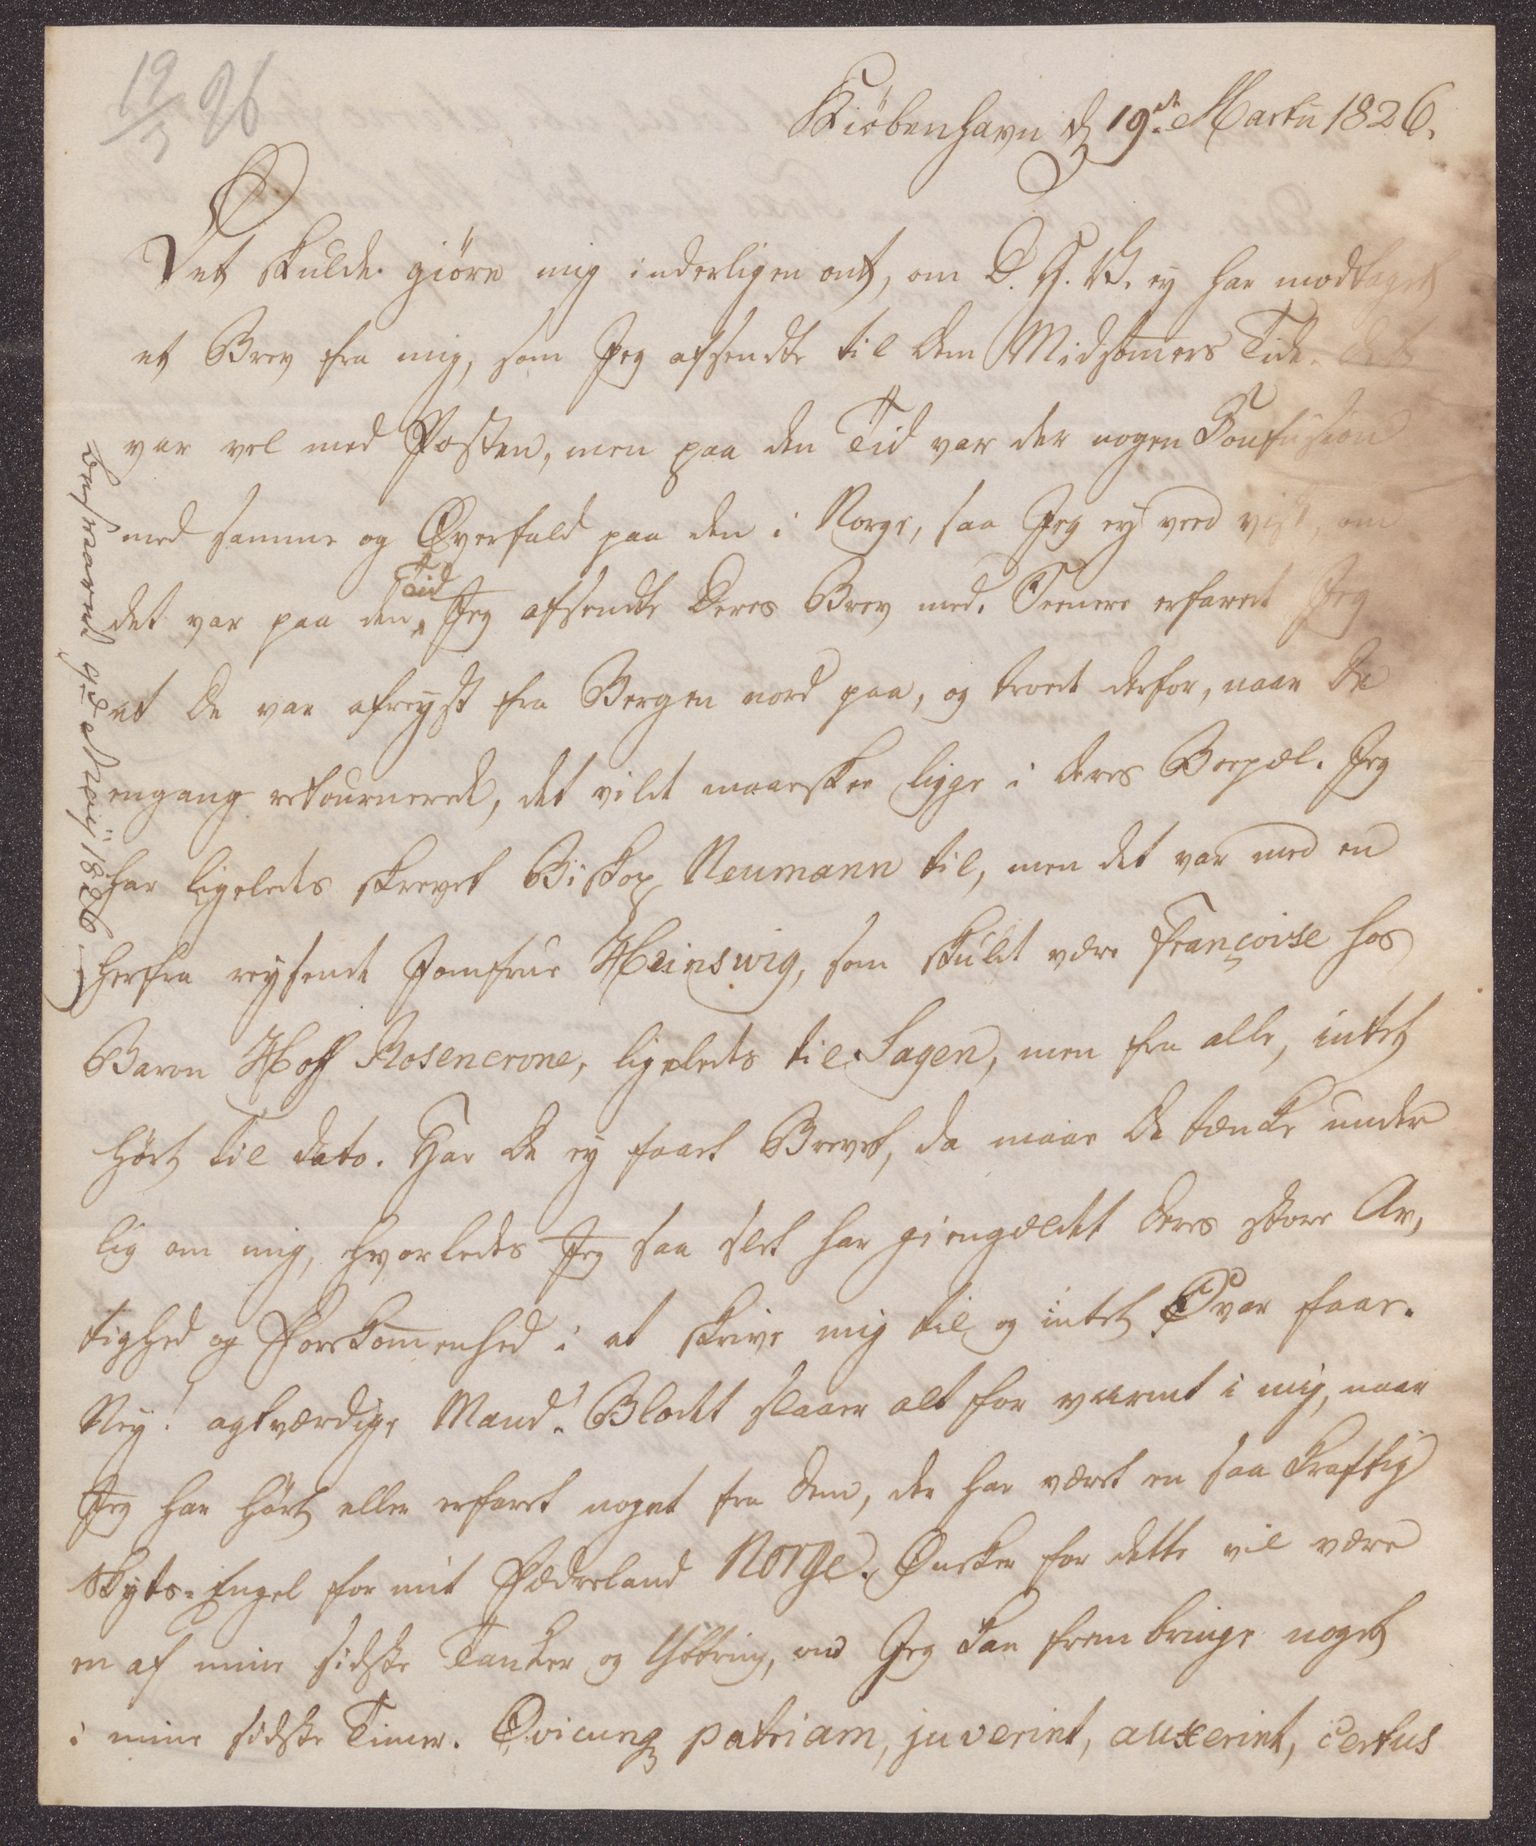 19/3 26
Kiöbenhavn d 19de Martii 1826.
Det skulde giöre mig inderligen ont, om D. H. V. ey har modtaget
et Brev fra mig, som Jeg afsendte til Dem Midsom̅ers Tide. det
var vel med Posten, men paa den Tid var der nogen Confusion
med samme og Overfald paa den i Norge, saa Jeg ey veed vist, om
det var paa den Tid Jeg afsendte Deres Brev med. Seenere erfared Jeg
at De var afreyst fra Bergen nord paa, og troede derfor, naar De
engang retournerede, det vilde maaeskee ligge i Deres Boepæl. Jeg
har ligeledes skrevet Biskop Neumann til, men det var med en
herfra reysende Jomfrue Heinswig, som skulde være Françoise hos
Baron Hoff Rosencrone, ligeledes til Sagen, men fra alle, intet
hört til dato. Har De ey faaet Brevet, da maae De tænke under
lig om mig, hvorledes Jeg saa slet har giengældet Deres store Ar,
tighed og Forekom̅enhed i at skrive mig til og intet Svar faar.
Ney! agtværdige Mand! Blodet slaaer alt for varmt i mig, naar
Jeg har hört eller erfaret noget fra Dem, der har været en saa kraftig
Skyts-Engel for mit Fædreland Norge. Ønsker for dette vil være
en af mine sidste Tanker og Yttring, om Jeg kan frembringe noget
i mine sidste Timer. Qvicunq patriam, juverint, auxerint, certus
besvaret 9de May 1826.